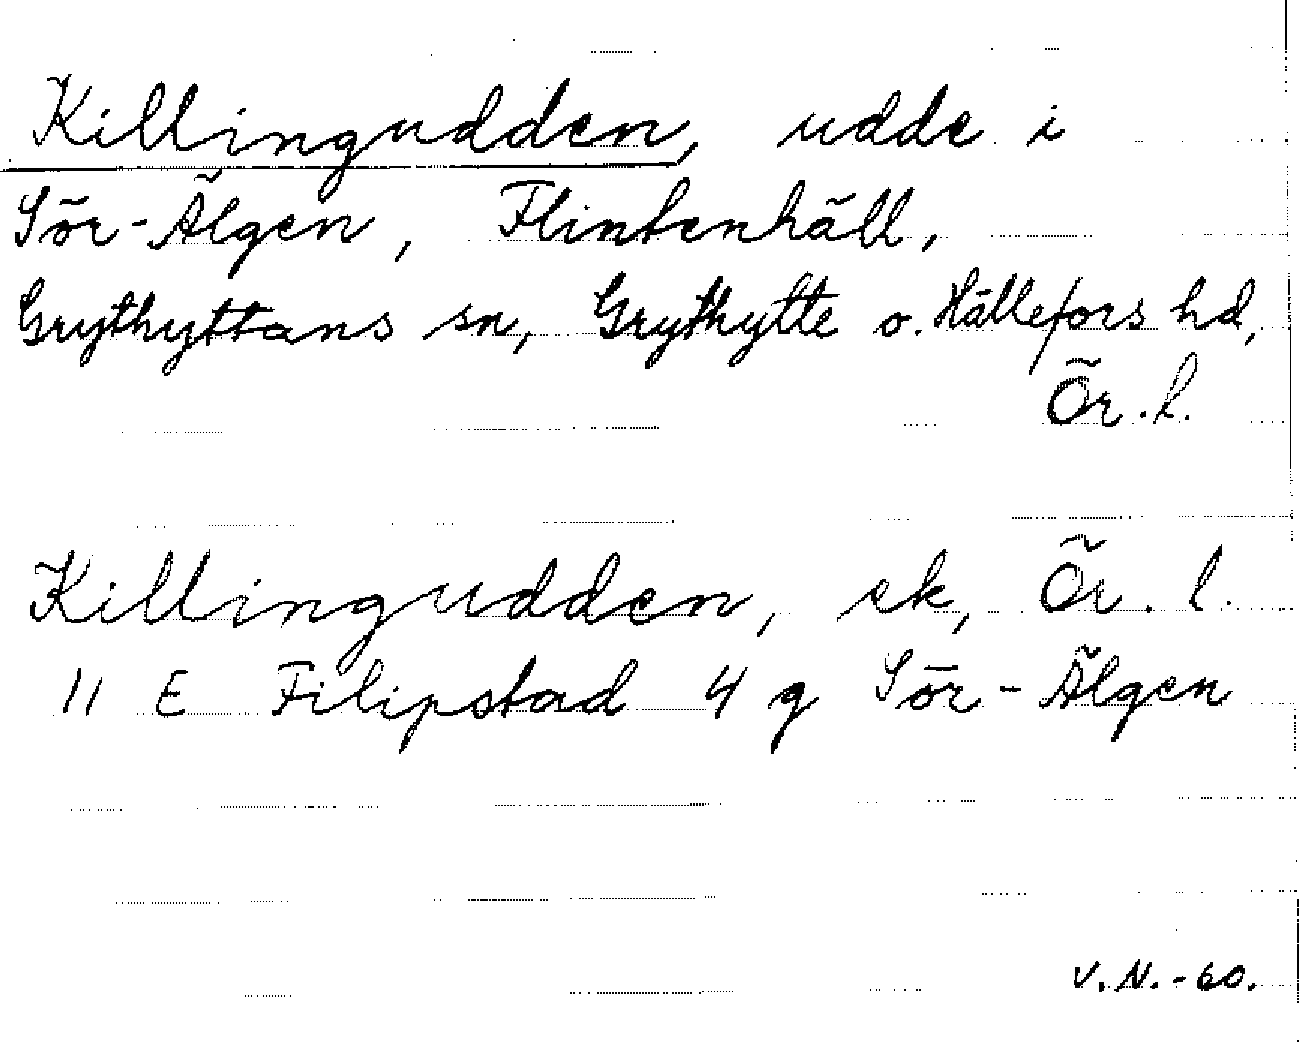 Killingudden, udde i
Sör-Älgen, Flintenhäll,
Grythyttans sn, Grythytte o. Hällefors hd,
Ör. l.
Killingudden, ek, Ör. l.
11 E Filipstad 4 g Sör-Älgen
V.N.-60.